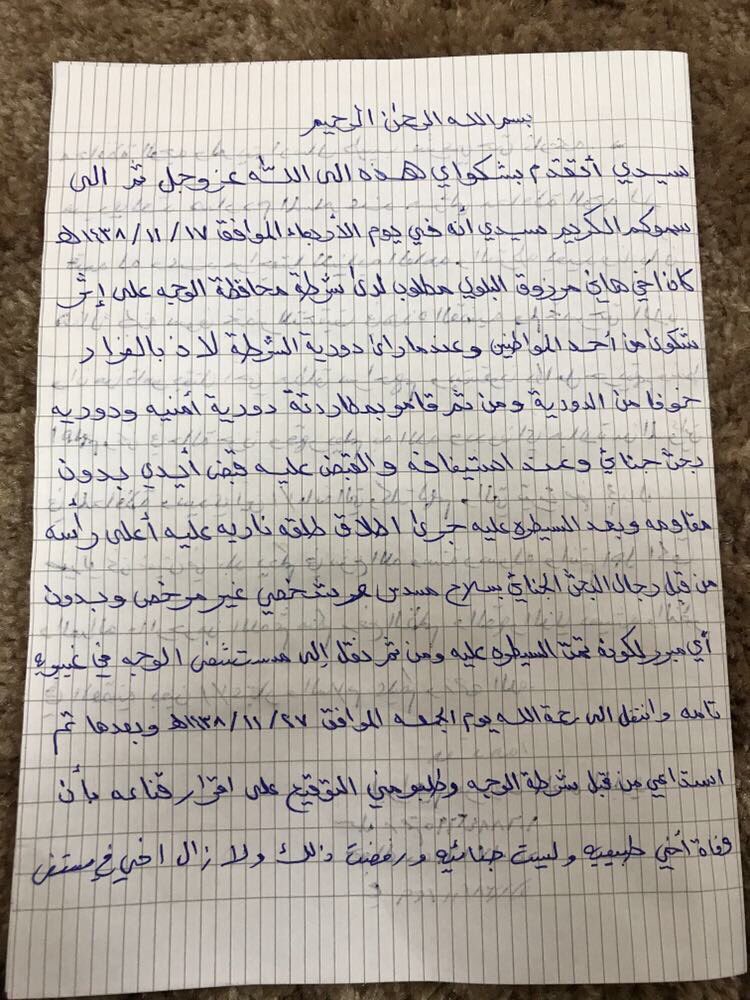 بسم الله الرحمن الرحيم
سيدي أتقدم بشكواي هذه الى الله عز وجل ثم الى
سموكم الكريم سيدي أنه في يوم الأربعاء الموافق ١٤٣٨/١١/١٧هـ
كان أخي هاني مرزوق البلوي مطلوب لدى شرطة محافظة الوجه على إثر
شكوى من أحد المواطنين وعندما رائ دورية الشرطة لاذ بالفرار
خوفا من الدورية ومن ثم قامو بمطاردتة دورية أمنيه ودوريه
بحث جنائي وعند استيقافه والقبض عليه قبض أيدي بدون
مقاومه وبعد السيطره عليه جرئ اطلاق طلقه ناريه عليه أعلى رأسه
من قبل رجال البحث الجنائي بسلاح مسدس شخصي غير مرخص وبدون
أي مبرر لكونه تحت السيطره عليه ومن ثم نقل إلى مستشفى الوجه في غيبوبه
تامه وانتقل الى رحمة الله يوم الجمعه الموافق ١٤٣٨/١١/٢٧هـ وبعدها تم
استداعي من قبل شرطة الوجه وطلبو مني التوقيع على اقرار قناعه بأن
وفاة أخي طبيعيه وليست جنائيه ورفضت ذلك ولا زال اخي في مستشفى